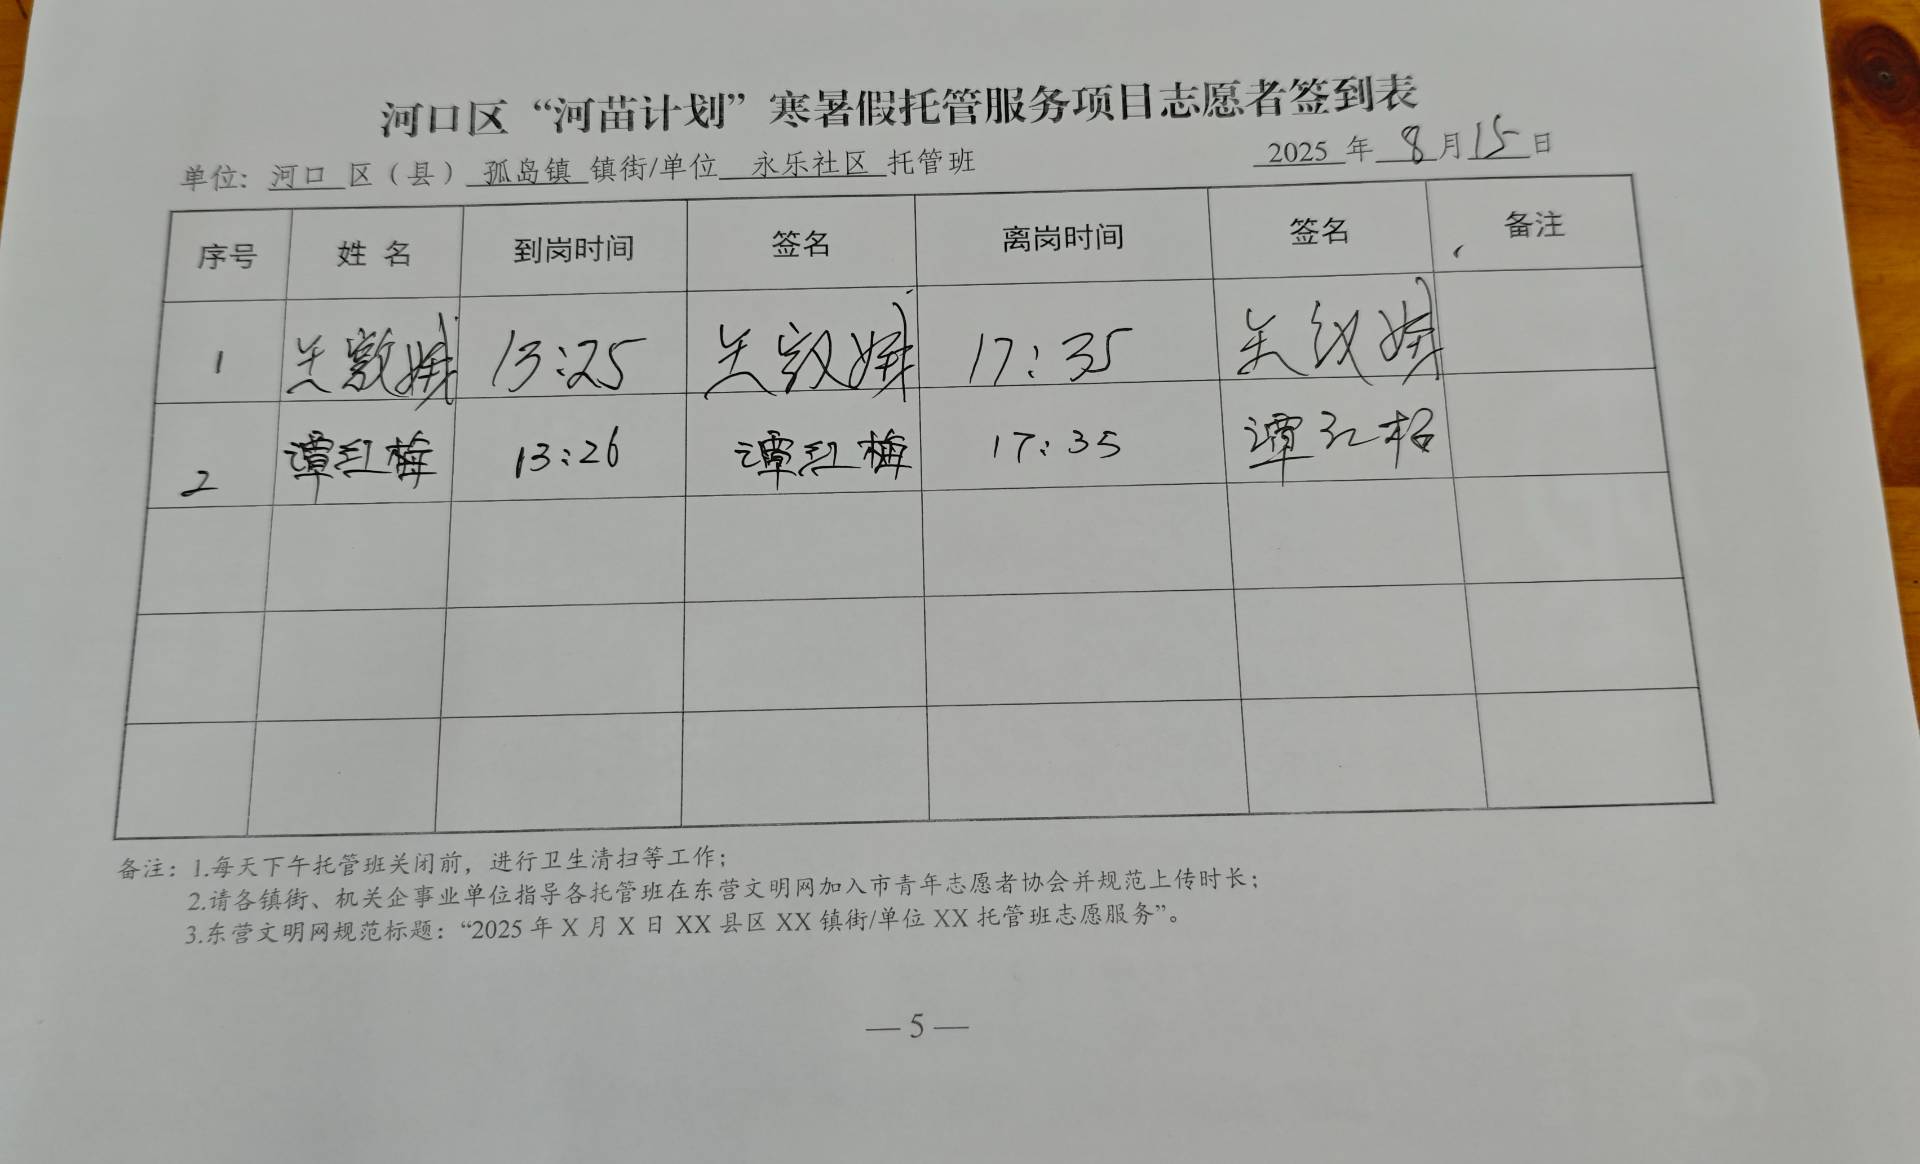 河口区“河苗计划”寒暑假托管服务项目志愿者签到表
单位: 河口 区（县） 孤岛镇 镇街/单位 永乐社区 托管班 2025 年 8 月 15 日
序号 姓 名 到岗时间 签名 离岗时间 签名 备注
1 13:25 17:35
2 谭红梅 13:26 谭红梅 17:35 谭红
备注：1.每天下午托管班关闭前，进行卫生清扫等工作；
2.请各镇街、机关企事业单位指导各托管班在东营文明网加入市青年志愿者协会并规范上传时长；
3.东营文明网规范标题：“2025 年 X 月 X 日 XX 县区 XX 镇街/单位 XX 托管班志愿服务”。
— 5 —